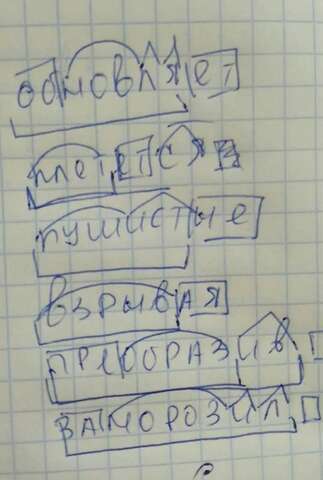 обновляет
плетется
пушистые
взрывая
преобразив
заморозил